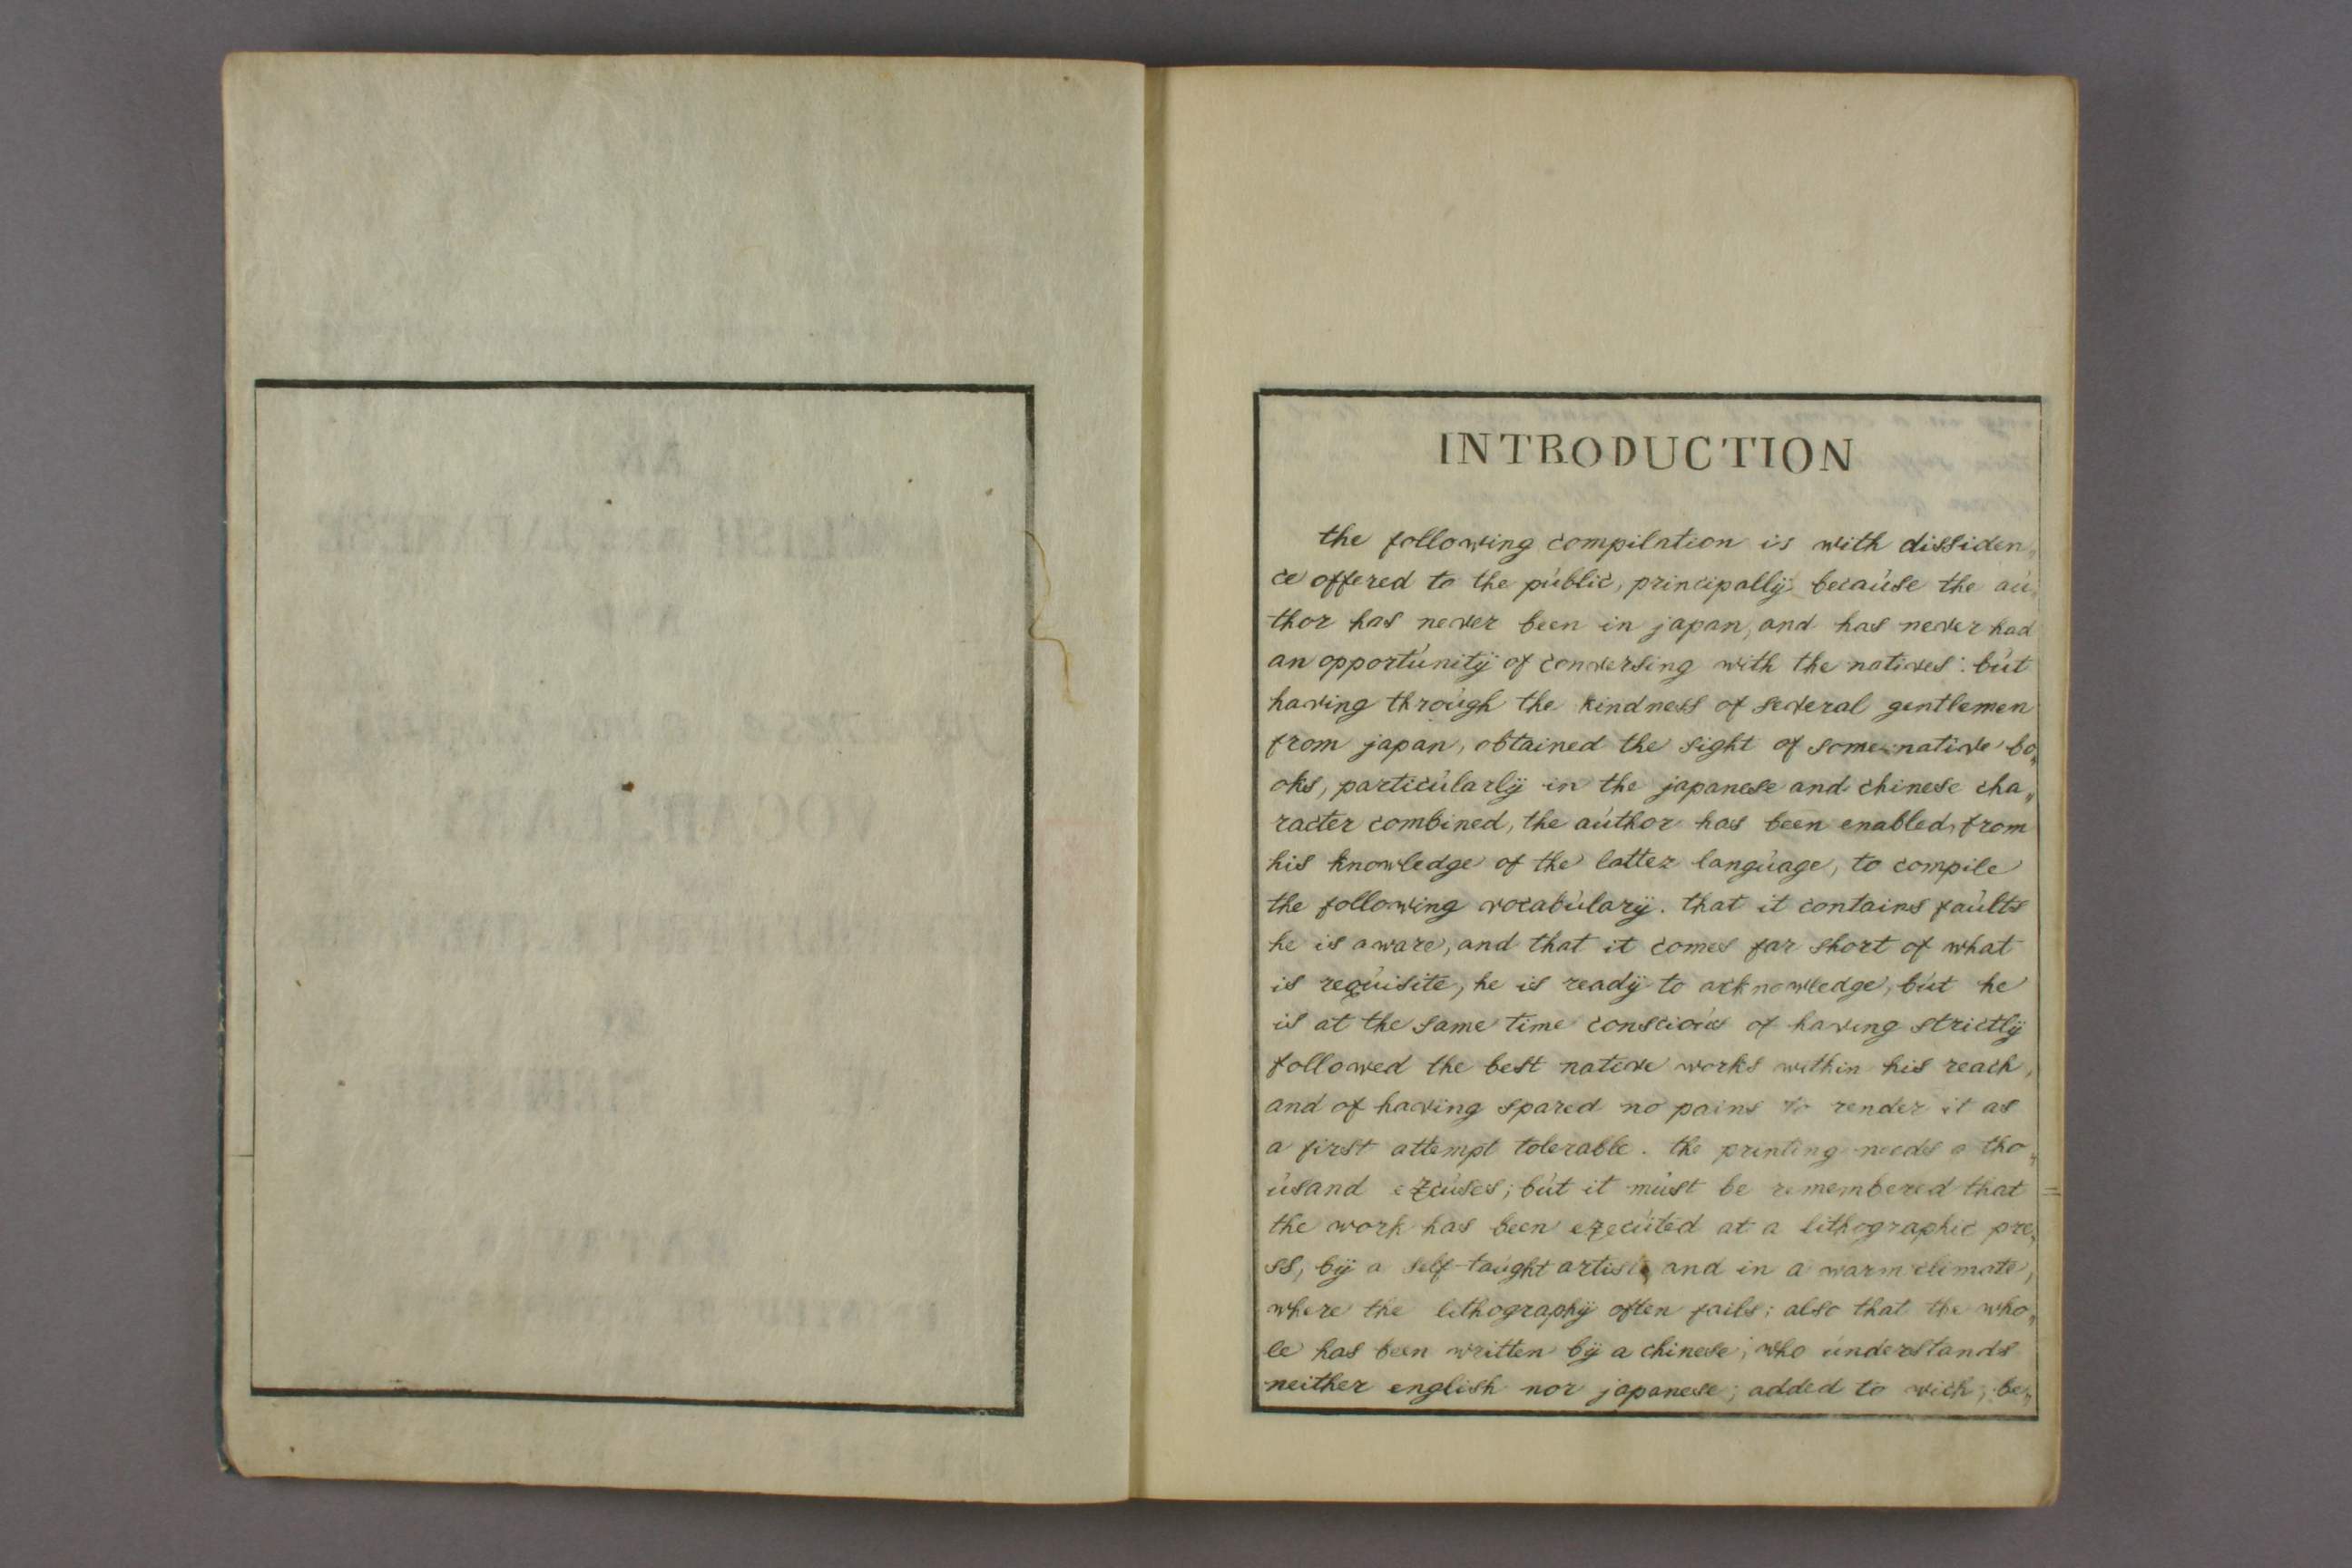 INTRODUCTION
the following compilation is with dissiden„
ce offered to the públic, principallÿ becaúse the aú„
thor has never been in japan, and has never had
an opportúnitÿ of conversing with the natives: bút
having throúgh the kindness of several gentlemen
from japan, obtained the sight of some native bo„
oks, particúlarlÿ in the japanese and chinese cha„
racter combined, the aúthor has been enabled, from
his knowledge of the latter langúage, to compile
the following vocabúlarÿ. that it contains faúlts
he is aware, and that it comes far short of what
is reqúisite, he is readÿ to acknowledge, bút he
is at the same time conscioús of having strictlÿ
followed the best native works within his reach,
and of having spared no pains to render it as
a first attempt tolerable. the printing needs a tho„
úsand excúses; bút it múst be remembered that
the work has been execúted at a lithographic pre„
ss, bÿ a self-taúght artist, and in a warm climate,
where the lithographÿ often fails; also that the who„
le has been written bÿ a chinese, who únderstands
neither english nor japanese; added to wich, be„